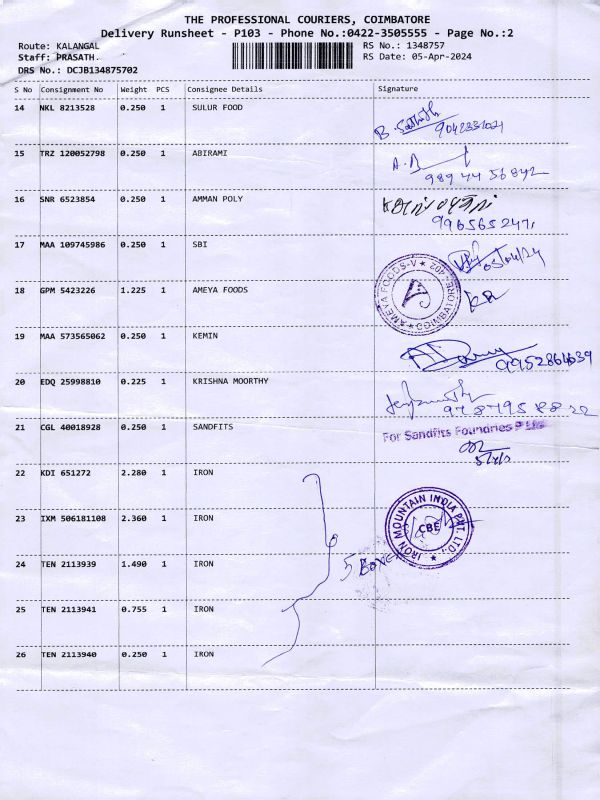 THE PROFESSIONAL COURIERS, COIMBATORE
Delivery Runsheet - P103 - Phone No.:0422-3505555 - Page No.:2
Route: KALANGAL RS No.: 1348757
Staff: PRASATH. RS Date: 05-Apr-2024
DRS No.: DCJB134875702
S No Consignment No Weight PCS Consignee Details Signature
14 NKL 8213528 0.250 1 SULUR FOOD
15 TRZ 120052798 0.250 1 ABIRAMI
16 SNR 6523854 0.250 1 AMMAN POLY
17 MAA 109745986 0.250 1 SBI
05/04/24
AMEYA FOODS-V COIMBATORE - 402
18 GPM 5423226 1.225 1 AMEYA FOODS
19 MAA 573565062 0.250 1 KEMIN
20 EDQ 25998810 0.225 1 KRISHNA MOORTHY
21 CGL 40018928 0.250 1 SANDFITS
For Sandfits Foundries P
22 KDI 651272 2.280 1 IRON
23 IXM 506181108 2.360 1 IRON
IRON MOUNTAIN INDIA PVT. LTD.,
CBE
24 TEN 2113939 1.490 1 IRON
5 Boxes
25 TEN 2113941 0.755 1 IRON
26 TEN 2113940 0.250 1 IRON